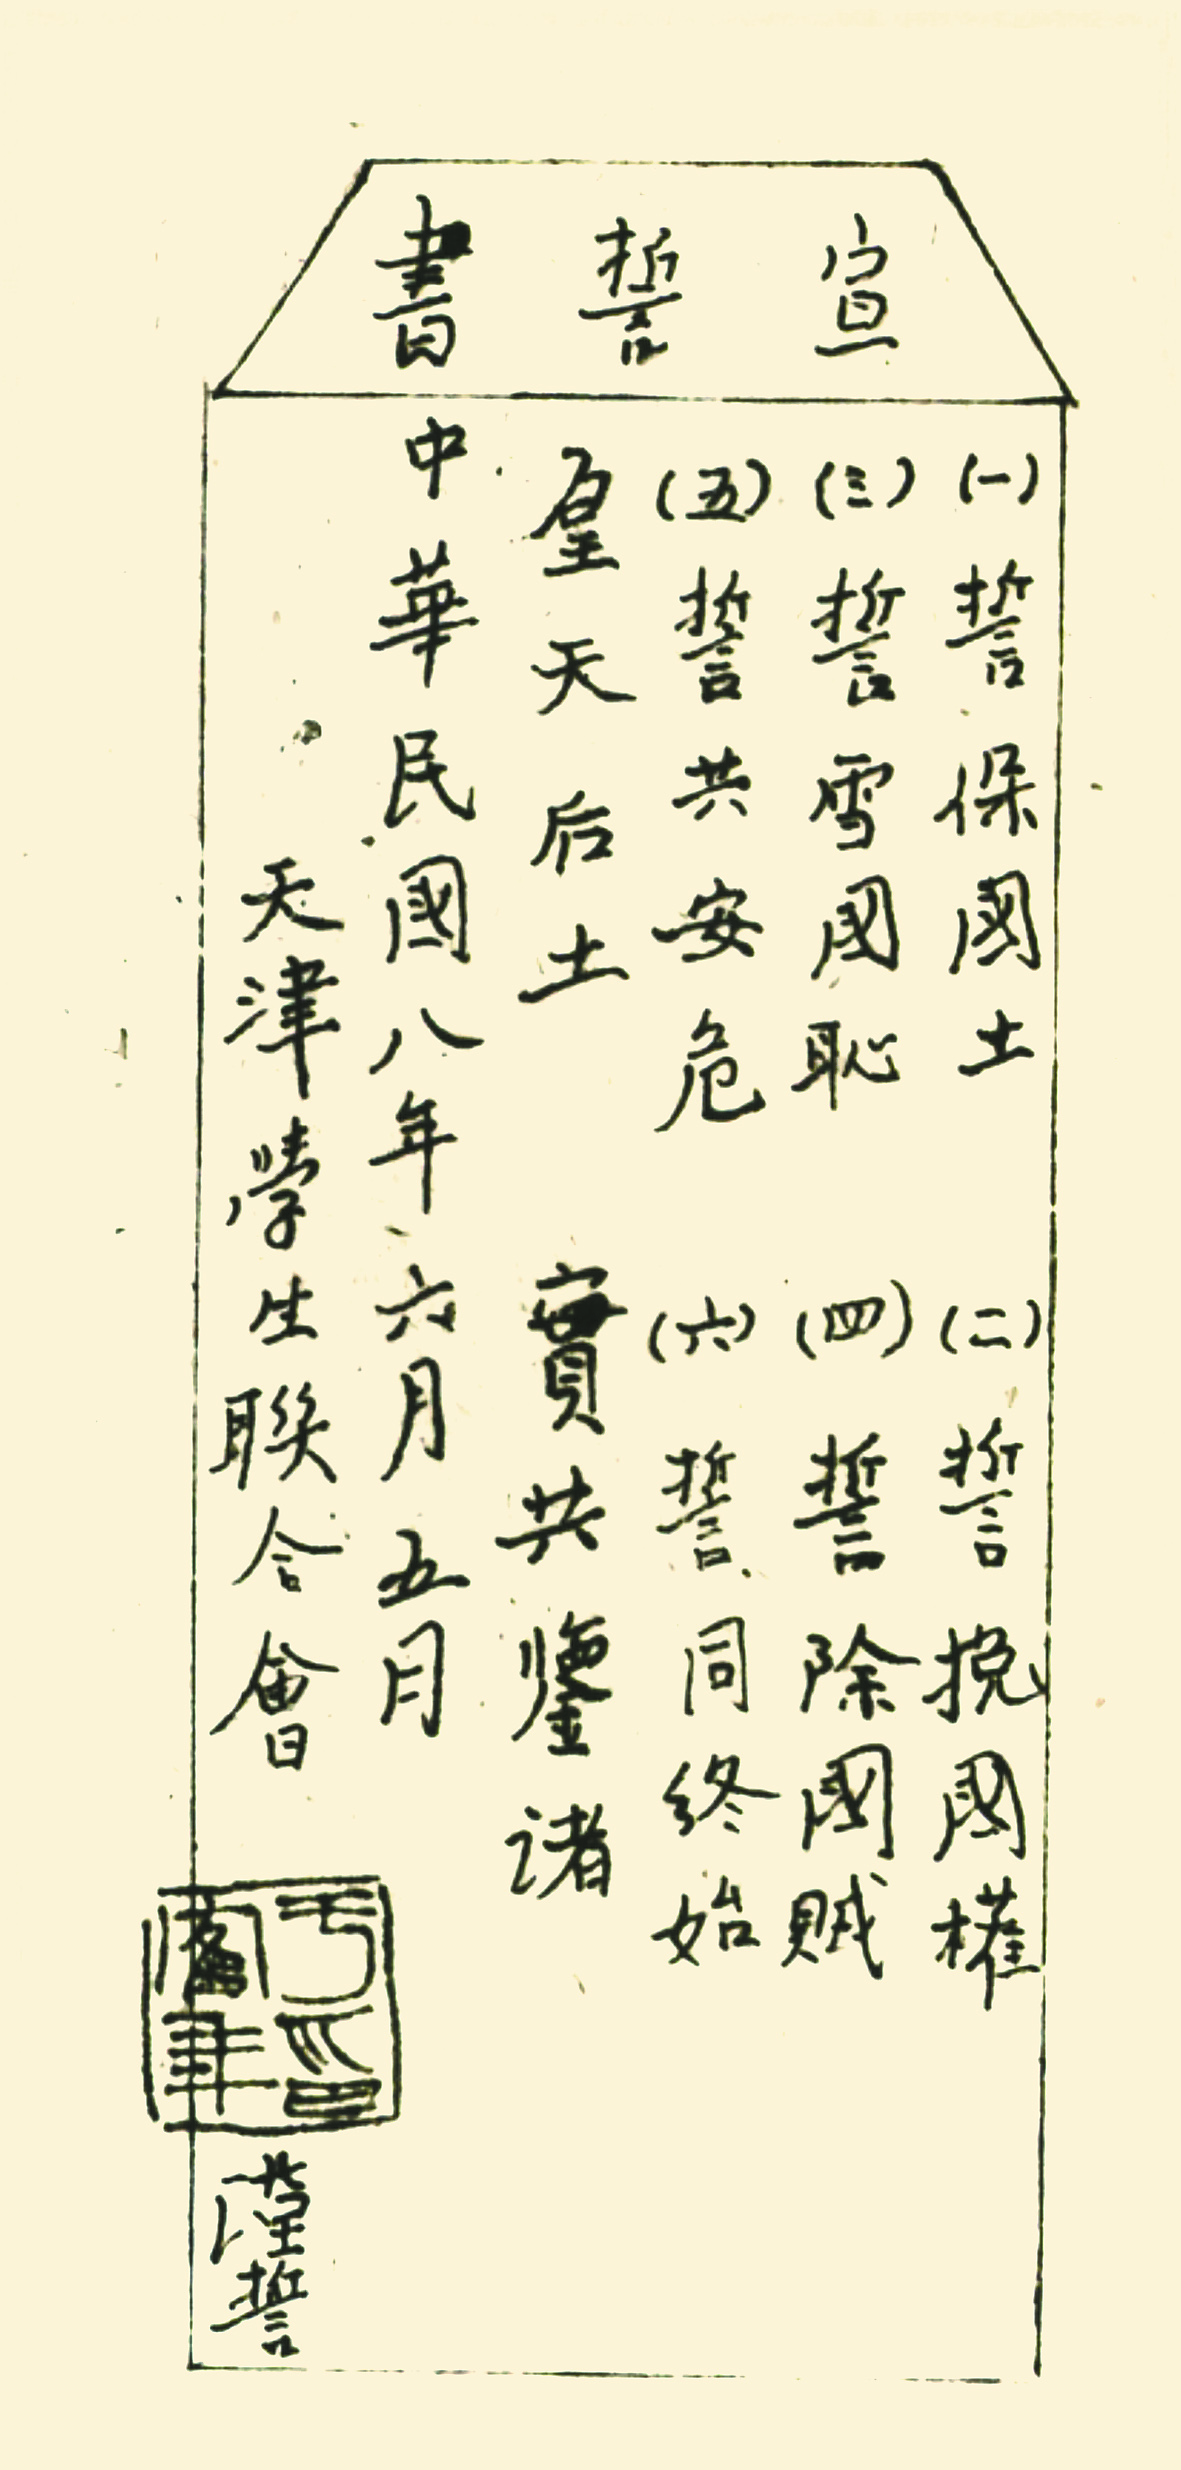 宣誓書
(一)誓保國土 (二)誓挽國權
(三)誓雪國恥 (四)誓除國賊
(五)誓共安危 (六)誓同終始
皇天后土 實共鑒諸
中華民國八年六月五日
天津學生聯合會
謹誓